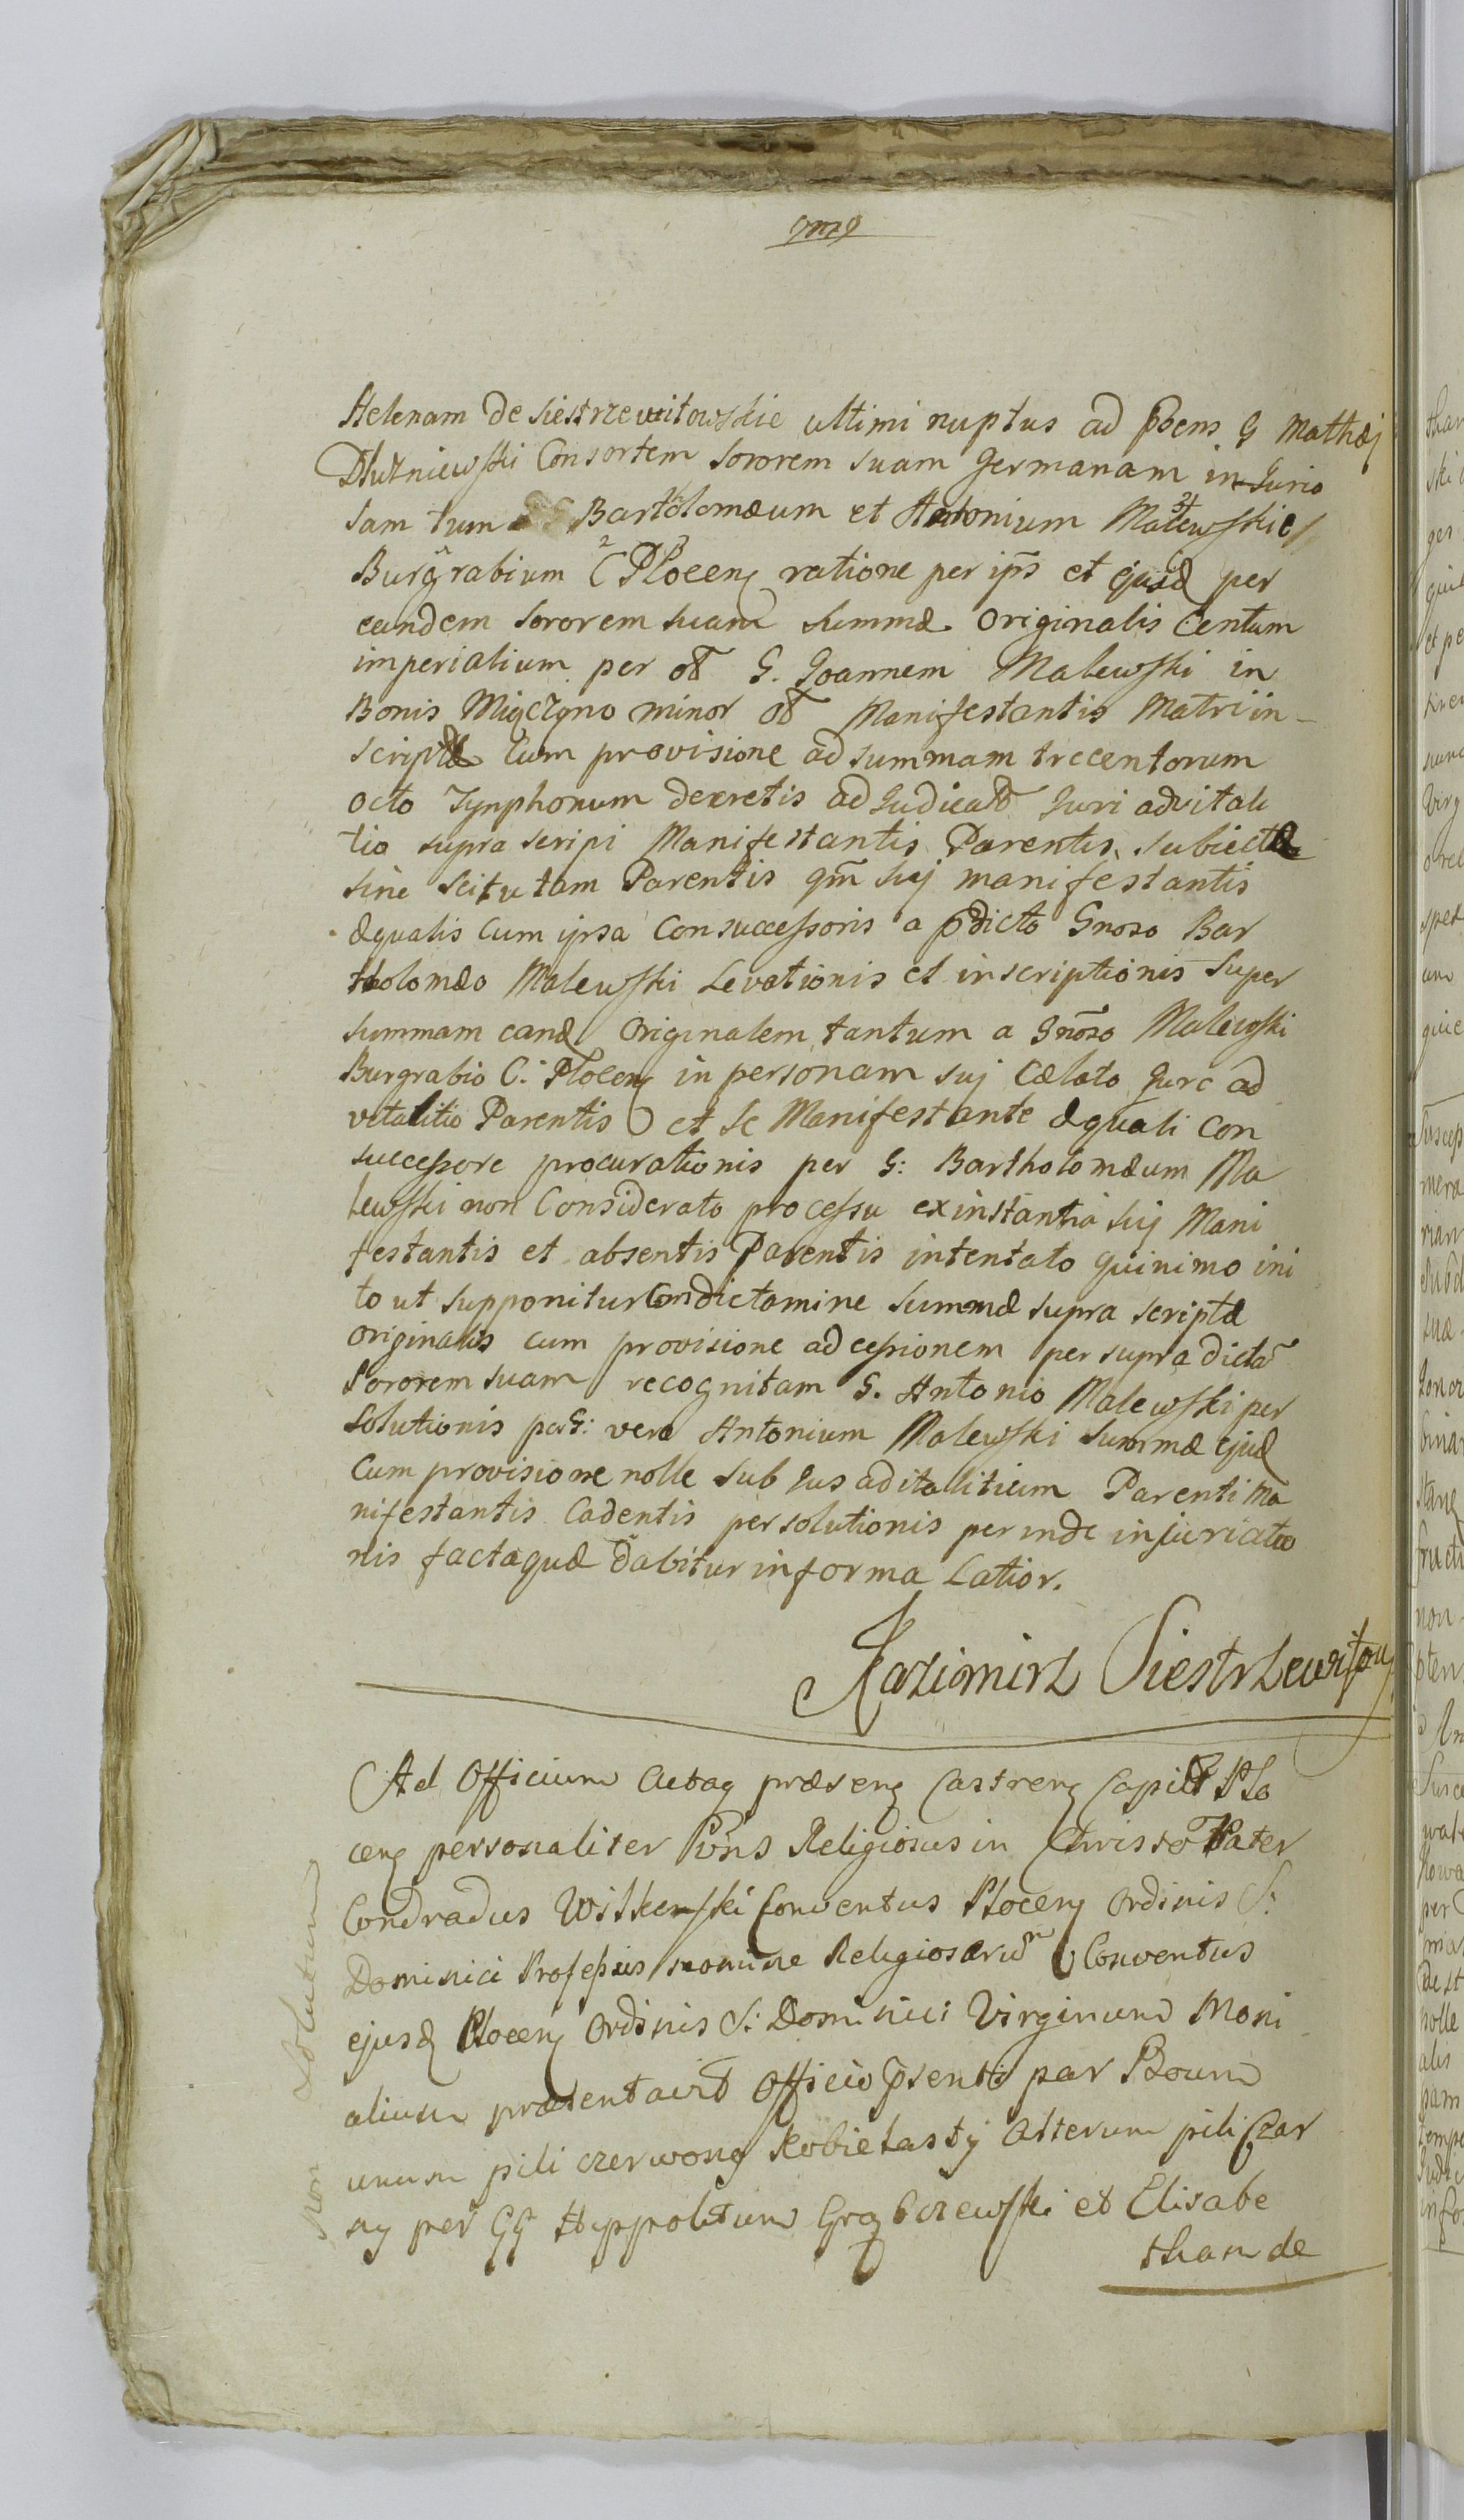 Helenam de Siestrzewitowskie ultimi nuptus ad pöens G Mathæj
Dłużniewski Consortem Sororem suam Germanam in Jurio
sam tum GG Bartholomæum et Antonium Malewskie
Burgrabium C Płocen ratione per ips et ejusd per
eandem sororem suam summæ originalis Centum
imperialium per oł G. Joannem Malewski in
Bonis Miączyno minor oł Manifestantis Matri in-
scriptæ cum provisione ad summam trecentorum
octo Tynphonum decretis adjudicatō Juri advitali
tio supra scripi Manifestantis Parentis subiectæ
sine scitu tam Parentis qm̄ suj manifestantis
æqualis cum ipsa Consuccessoris a p̄dicto Gnoso Bar
tholomæo Malewski Levationis et inscriptionis super
summam eand originalem tantum a Gnōso Malewski
Burgrabio C. Płocen in personam suj cælato Jure ad
vitalitio Parentis et se Manifestante æquali con
successore procurationis per G: Bartholomæum Ma
lewski non Considerato processu ex instantia suj Mani
festantis et absentis Parentis intentato quinimo ini
to ut supponitur Condictamine summæ supra scriptæ
originalis cum provisione ad cessionem per supra dictā
Sororem suam recognitam G. Antonio Malewski per
solutionis per G: vero Antonium Malewski summæ ejusd
cum provisione nolle sub Jus aditallitium Parenti Ma
nifestantis Cadentis persolutionis perinde injuriatio
nis factaquæ dabitur in forma Latior.
Kazimirz Siestrzewitow
Ad Officium Actaq præsenz Castrenz Capitł Pło
cenz personaliter v̄ns Religiosus in Christo Pater
Condradus Witkowski Conventus Płocenz Ordinis S:
Dominici Professus nomine Religiosarum Conventus
ejusd Płocenz Ordinis S: Dominici Virginum Moni
alium præsentavit Officio p̄senti par Boum
unum pili czerwony kobielasty Alterum pili Czar
ny per GG Hyppolitum Grąbczewski et Elisabe
tham de
Non Solutum